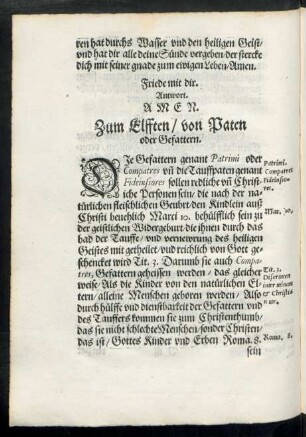 ren hat durchs Wasser vnd den heiligen Geist
vnd hat dir alle deine Sünde vergeben der stercke
dich mit seiner gnade zum ewigen Leben Amen.
Friede mit dir.
Antwort.
AMEN.
Zum Elfften / von Paten
oder Gefattern.
DJe Gefattern genant Patrimi oder
Compatres vñ die Tauffpaten genant
Fideiussores sollen redliche vñ Christ-
liche Personen sein / die nach der na-
türlichen fleischlichen Geuhrt / den Kindlein auß
Christi beuehlich Marci 10. behülfflich sein zu
der geistlichen Widergeburt die ihnen durch das
bad der Tauffe / vnd vernewerung des heiligen
Geistes mit getheilet vnd reichlich von Gott ge-
schencket wird Tit. 3. Darumb sie auch Compa-
tres, Gefattern geheissen werden / das gleicher
weise / Als die Kinder von den natürlichen El-
tern / alleine Menschen gehoren werden / Also
durch hülffe vnd dienstbarkeit der Gefattern vnd
des Tauffers kommen sie zum Christenthumb /
das sie nicht schlechte Menschen / sonder Christen /
das ist / Gottes Kinder vnd Erben Roma. 8.
sein
Patrimi.
Compatres
Mar. 10.
Tit. 3.
Roma. 8.